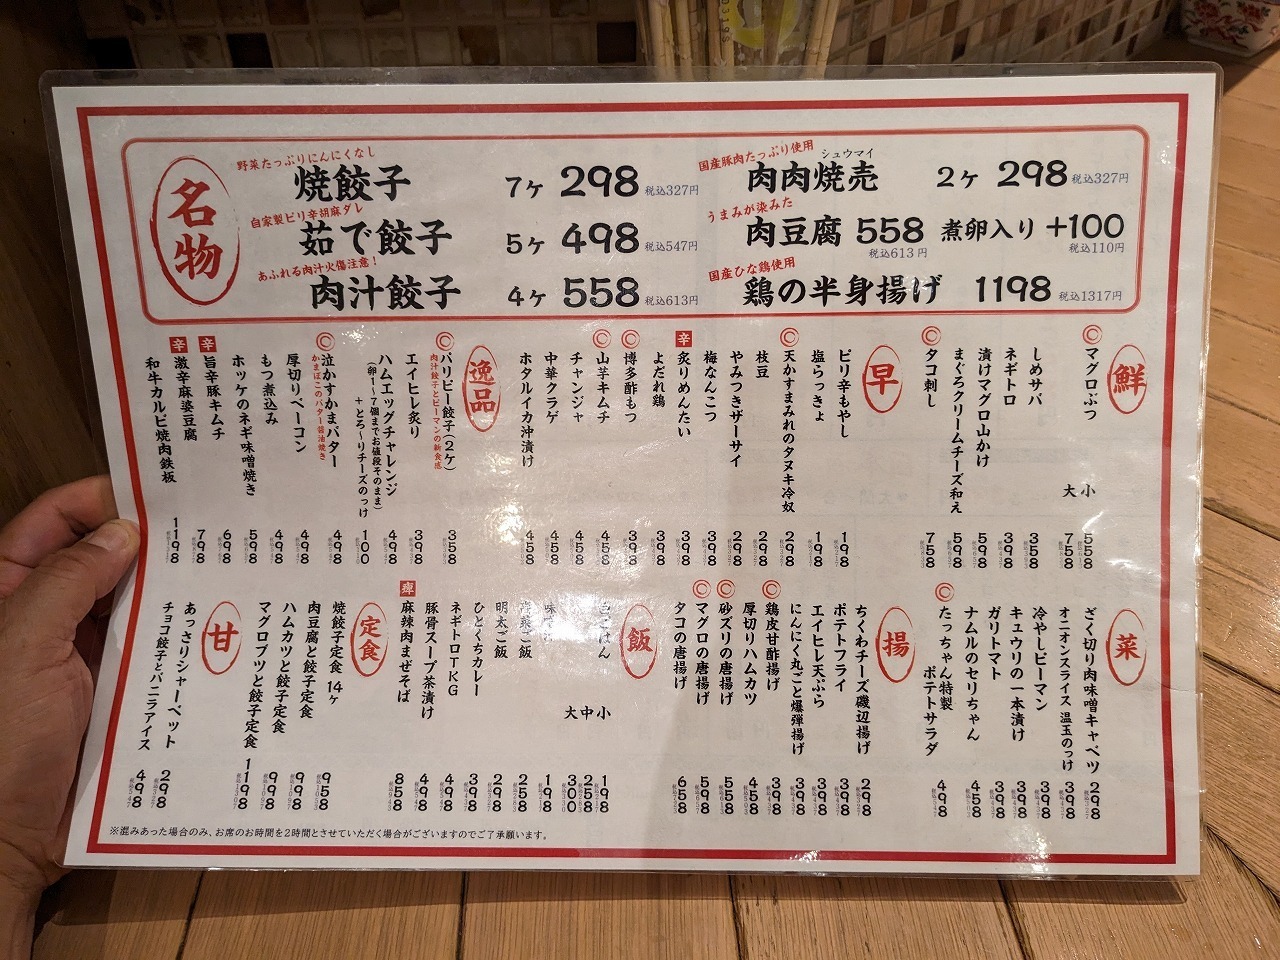 名物
野菜たっぷりにんにくなし
焼餃子 7ヶ 298 税込327円
自家製ピリ辛胡麻ダレ
茹で餃子 5ヶ 498 税込547円
あふれる肉汁火傷注意!
肉汁餃子 4ヶ 558 税込613円
国産豚肉たっぷり使用
シュウマイ
肉肉焼売 2ヶ 298 税込327円
うまみが染みた
肉豆腐 558 税込613円 煮卵入り +100 税込110円
国産ひな鶏使用
鶏の半身揚げ 1198 税込1317円
鮮
Ⓒマグロぶつ 小 558
大 758
しめサバ 358
ネギトロ 398
漬けマグロ山かけ 598
まぐろクリームチーズ和え 598
Ⓒタコ刺し 758
早
ピリ辛もやし 198
塩らっきょ 198
Ⓒ天かすまみれのタヌキ冷奴 298
枝豆 298
やみつきザーサイ 298
梅なんこつ 398
辛 炙りめんたい 398
よだれ鶏 398
Ⓒ博多酢もつ 398
Ⓒ山芋キムチ 458
チャンジャ 458
中華クラゲ 458
ホタルイカ沖漬け 458
逸品
Ⓒパリピー餃子(2ヶ) 358
肉汁餃子とピーマンの新食感
エイヒレ炙り 398
ハムエッグチャレンジ 498
(卵1〜7個までお値段そのまま)
+とろ〜りチーズのっけ 100
Ⓒ泣かすかまバター 498
かまぼこのバター醤油焼き
厚切りベーコン 498
もつ煮込み 498
ホッケのネギ味噌焼き 598
辛 旨辛豚キムチ 698
辛 激辛麻婆豆腐 798
和牛カルビ焼肉鉄板 1198
菜
ざく切り肉味噌キャベツ 298
オニオンスライス 温玉のっけ 398
冷やしピーマン 398
キュウリの一本漬け 398
ガリトマト 398
ナムルのセリちゃん 458
Ⓒたっちゃん特製
ポテトサラダ 498
揚
ちくわチーズ磯辺揚げ 298
ポテトフライ 398
エイヒレ天ぷら 398
にんにく丸ごと爆弾揚げ 398
Ⓒ鶏皮甘酢揚げ 398
厚切りハムカツ 458
Ⓒ砂ズリの唐揚げ 558
Ⓒマグロの唐揚げ 598
タコの唐揚げ 658
飯
ごはん 小 198
中 258
大 310
味 198
高菜ご飯 258
明太ご飯 298
ひとくちカレー 398
ネギトロTKG 498
豚骨スープ茶漬け 498
痺 麻辣肉まぜそば 858
定食
焼餃子定食 14ヶ 958
肉豆腐と餃子定食 998
ハムカツと餃子定食 998
マグロブツと餃子定食 1198
甘
あっさりシャーベット 298
チョコ餃子とバニラアイス 498
※混みあった場合のみ、お席のお時間を2時間とさせていただく場合がございますのでご了承願います。